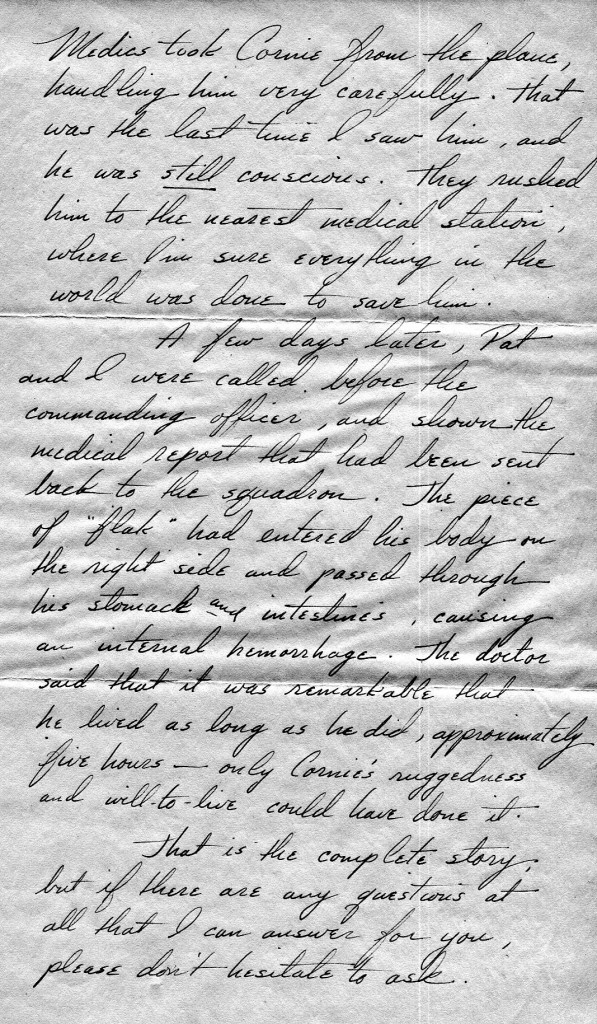 Medics took Cornie from the plane,
handling him very carefully. That
was the last time I saw him, and
he was still conscious. They rushed
him to the nearest medical station,
where I'm sure everything in the
world was done to save him.
A few days later, Pat
and I were called before the
commanding officer, and shown the
medical report that had been sent
back to the squadron. The piece
of "flak" had entered his body on
the right side and passed through
his stomach and intestines, causing
an internal hemorrhage. The doctor
said that it was remarkable that
he lived as long as he did, approximately
five hours — only Cornie's ruggedness
and will-to-live could have done it.
That is the complete story,
but if there are any questions at
all that I can answer for you,
please don't hesitate to ask.